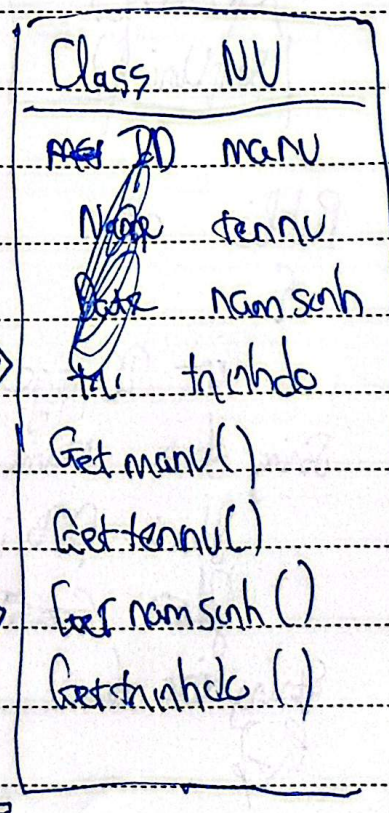 Class NV
ID manv
Name tennv
Date namsinh
tri trinhdo
Get manv()
Get tennv()
Get namsinh()
Get trinhdo()